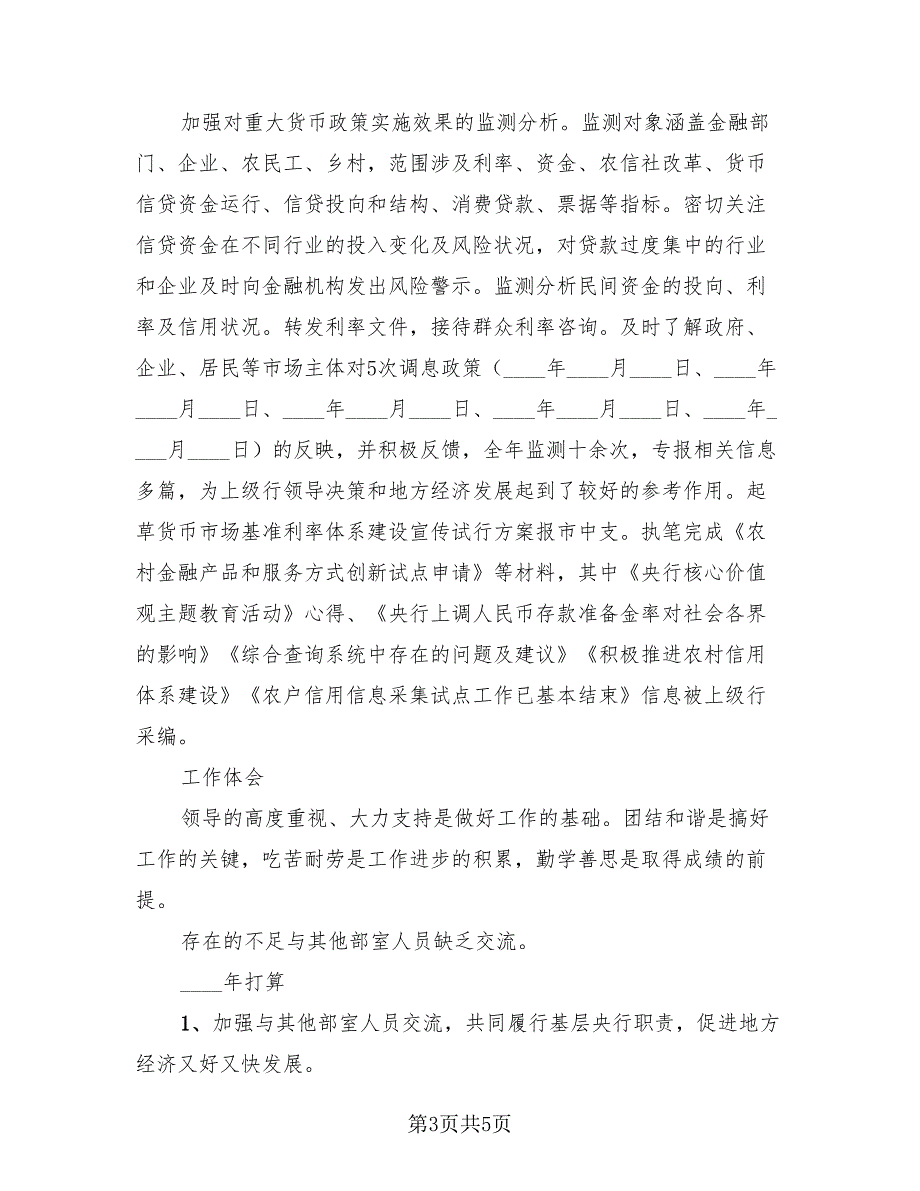 加强对重大货币政策实施效果的监测分析。监测对象涵盖金融部
门、企业、农民工、乡村，范围涉及利率、资金、农信社改革、货币
信贷资金运行、信贷投向和结构、消费贷款、票据等指标。密切关注
信贷资金在不同行业的投入变化及风险状况，对贷款过度集中的行业
和企业及时向金融机构发出风险警示。监测分析民间资金的投向、利
率及信用状况。转发利率文件，接待群众利率咨询。及时了解政府、
企业、居民等市场主体对5次调息政策（____年____月____日、____年
____月____日、____年____月____日、____年____月____日、____年_
___月____日）的反映，并积极反馈，全年监测十余次，专报相关信息
多篇，为上级行领导决策和地方经济发展起到了较好的参考作用。起
草货币市场基准利率体系建设宣传试行方案报市中支。执笔完成《农
村金融产品和服务方式创新试点申请》等材料，其中《央行核心价值
观主题教育活动》心得、《央行上调人民币存款准备金率对社会各界
的影响》《综合查询系统中存在的问题及建议》《积极推进农村信用
体系建设》《农户信用信息采集试点工作已基本结束》信息被上级行
采编。
工作体会
领导的高度重视、大力支持是做好工作的基础。团结和谐是搞好
工作的关键，吃苦耐劳是工作进步的积累，勤学善思是取得成绩的前
提。
存在的不足与其他部室人员缺乏交流。
____年打算
1、加强与其他部室人员交流，共同履行基层央行职责，促进地方
经济又好又快发展。
第3页共5页